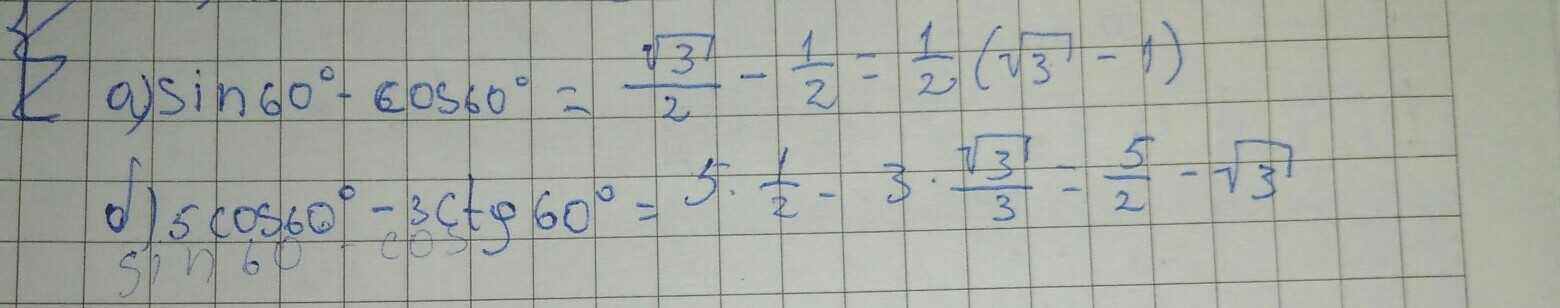 а) sin60° - cos60° = √3/2 - 1/2 = 1/2 (√3 - 1)
б) 5cos60° - 3ctg60° = 5 · 1/2 - 3 · √3/3 = 5/2 - √3
sin 60 - cos